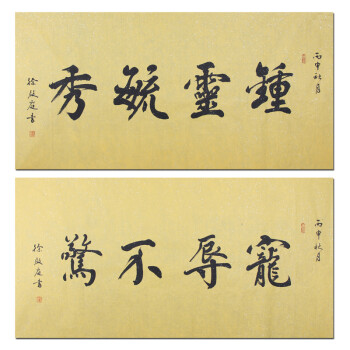 丙申秋月
鍾靈毓秀
徐啟庭書
丙申秋月
寵辱不驚
徐啟庭書